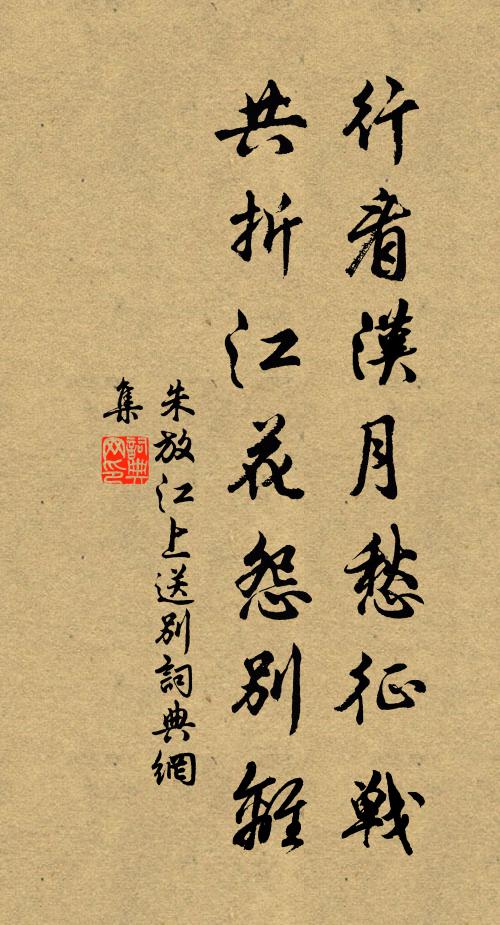 行看漢月愁征戰
共折江花怨別離
朱放江上送別詞典網
集
詞典
網印